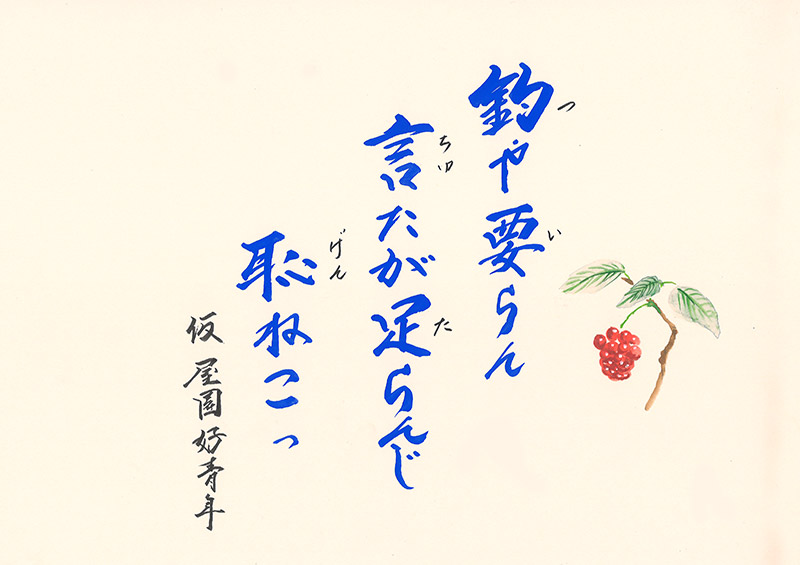 釣や要らん
つ い
言たが足らんじ
ちゆ た
恥ねこっ
げん
仮屋園好青年